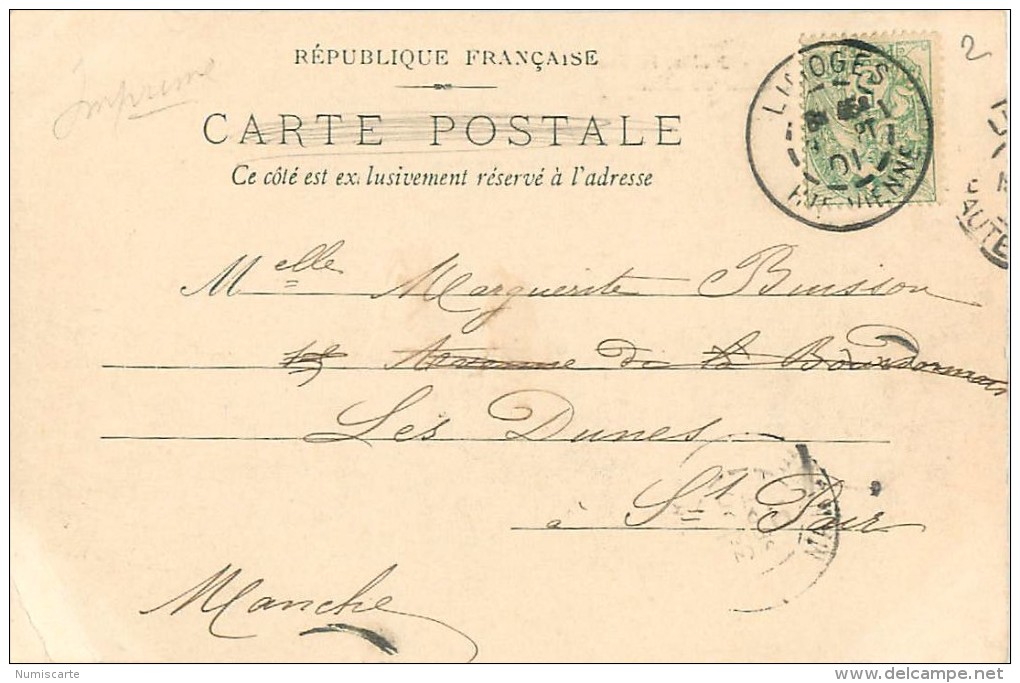 RÉPUBLIQUE FRANÇAISE
2
Imprimé
CARTE POSTALE
Ce côté est exclusivement réservé à l'adresse
LIMOGES
01
HTE VIENNE
AUTE
Melle Marguerite Buisson
15 Avenue de la Bourdonnais
Les Dunes
à St Pair
MAN
Manche
Numiscarte
www.delcampe.net